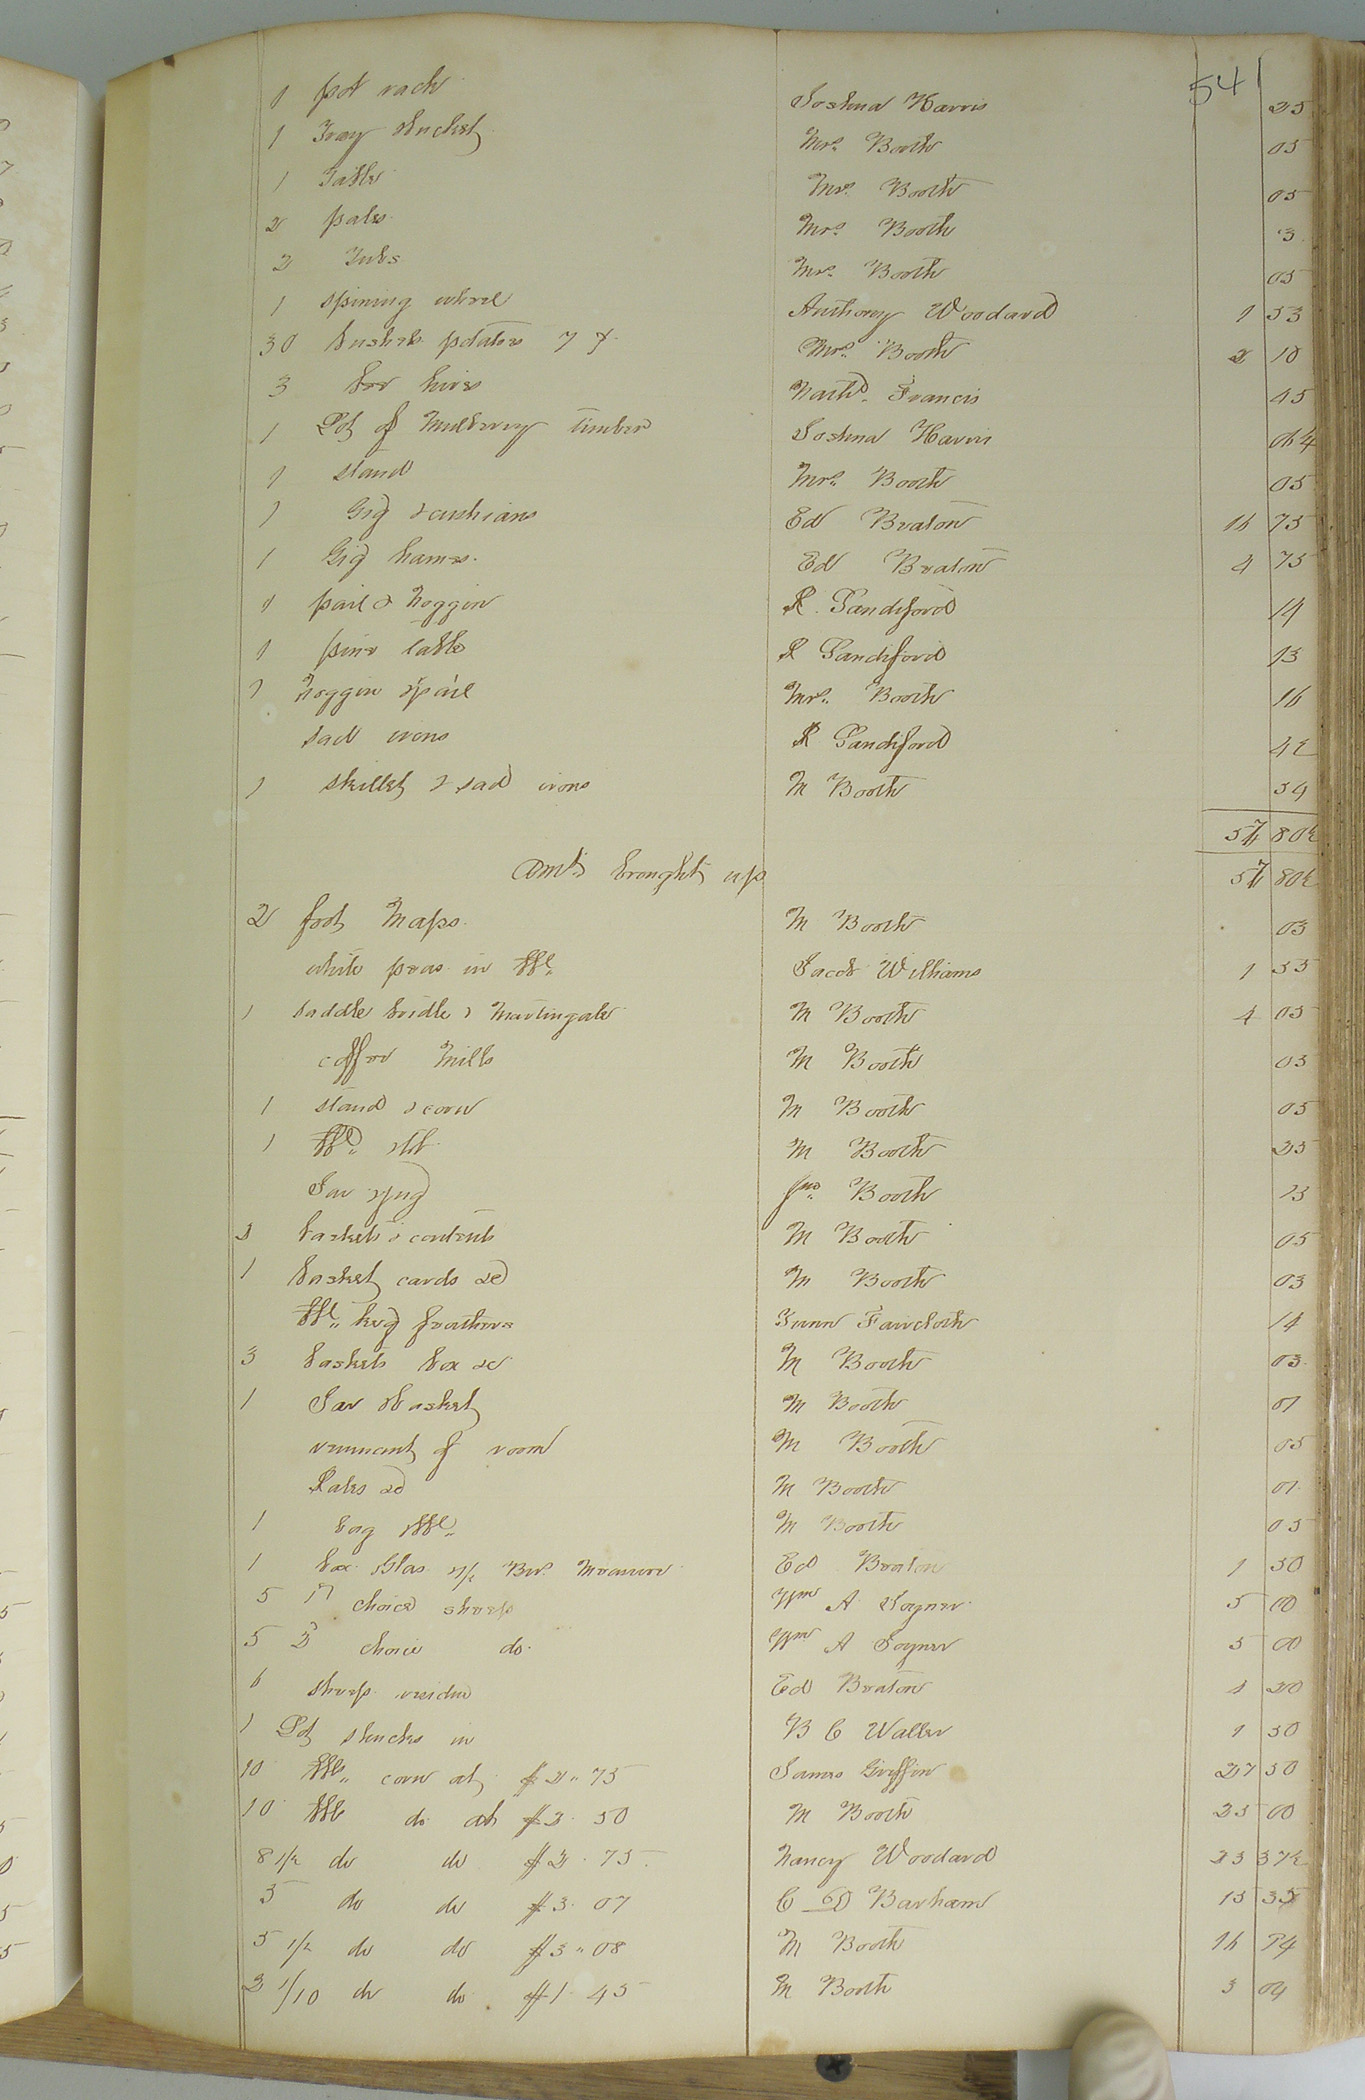 541
1 pot rack Joshua Harris 25
1 Tray & bucket Mrs. Booth 05
1 Table Mrs. Booth 05
2 pales Mrs. Booth 3
2 Tubs Mrs. Booth 05
1 spining wheel Anthony Woodard 1 53
30 bushels potatoes 7 ¢ Mrs. Booth 2 10
3 bee hives Nathl. Francis 45
1 Lot of Mulberry timber Joshua Harris
1 stand Mrs. Booth 05
1 Gig & cushians Ed Beaton 16 75
1 Gig harnes. Ed Beaton 4 75
1 pail & Noggin R. Sandiford 14
1 pine table R Sandiford 13
1 Noggin & pail Mrs. Booth 16
sad irons R Sandiford
1 skillet & sad irons M Booth 54
80½
Amt. brought up 80½
2 foot Maps. M Booth 03
white peas in bbl. Jacob Williams 1 55
1 saddle bridle & Martingale M Booth 4 05
coffee Mills M Booth 03
1 stand & corn M Booth 05
1 M Booth 25
Jar & jug Jno. Booth 13
2 baskets & contents M Booth 05
1 basket cards &c M Booth 03
bbl. keg feathers Faircloth 14
3 baskets box &c M Booth 03
1 Jar & basket M Booth 01
remnant of room M Booth 05
Rales &c M Booth 01
1 bag & bbl. M Booth 05
1 box Glas Ed Beaton 1 50
5 1st choice sheep Wm A Joyner 5 00
5 2d choice do. Wm A Joyner 5 00
6 sheep residue Ed Beaton 20
1 Lot shucks in B C Waller 1 50
10 bbls. corn at $2.75 James Griffin 27 50
10 bbls do at $2.50 M Booth 25 00
8 1/2 do do $2.75. Nancy Woodard 23 37½
5 do do $3.07 C D Barham 15 35
5 1/2 do do $3.08 M Booth 16 94
2 1/10 do do $1.45 M Booth 3 04